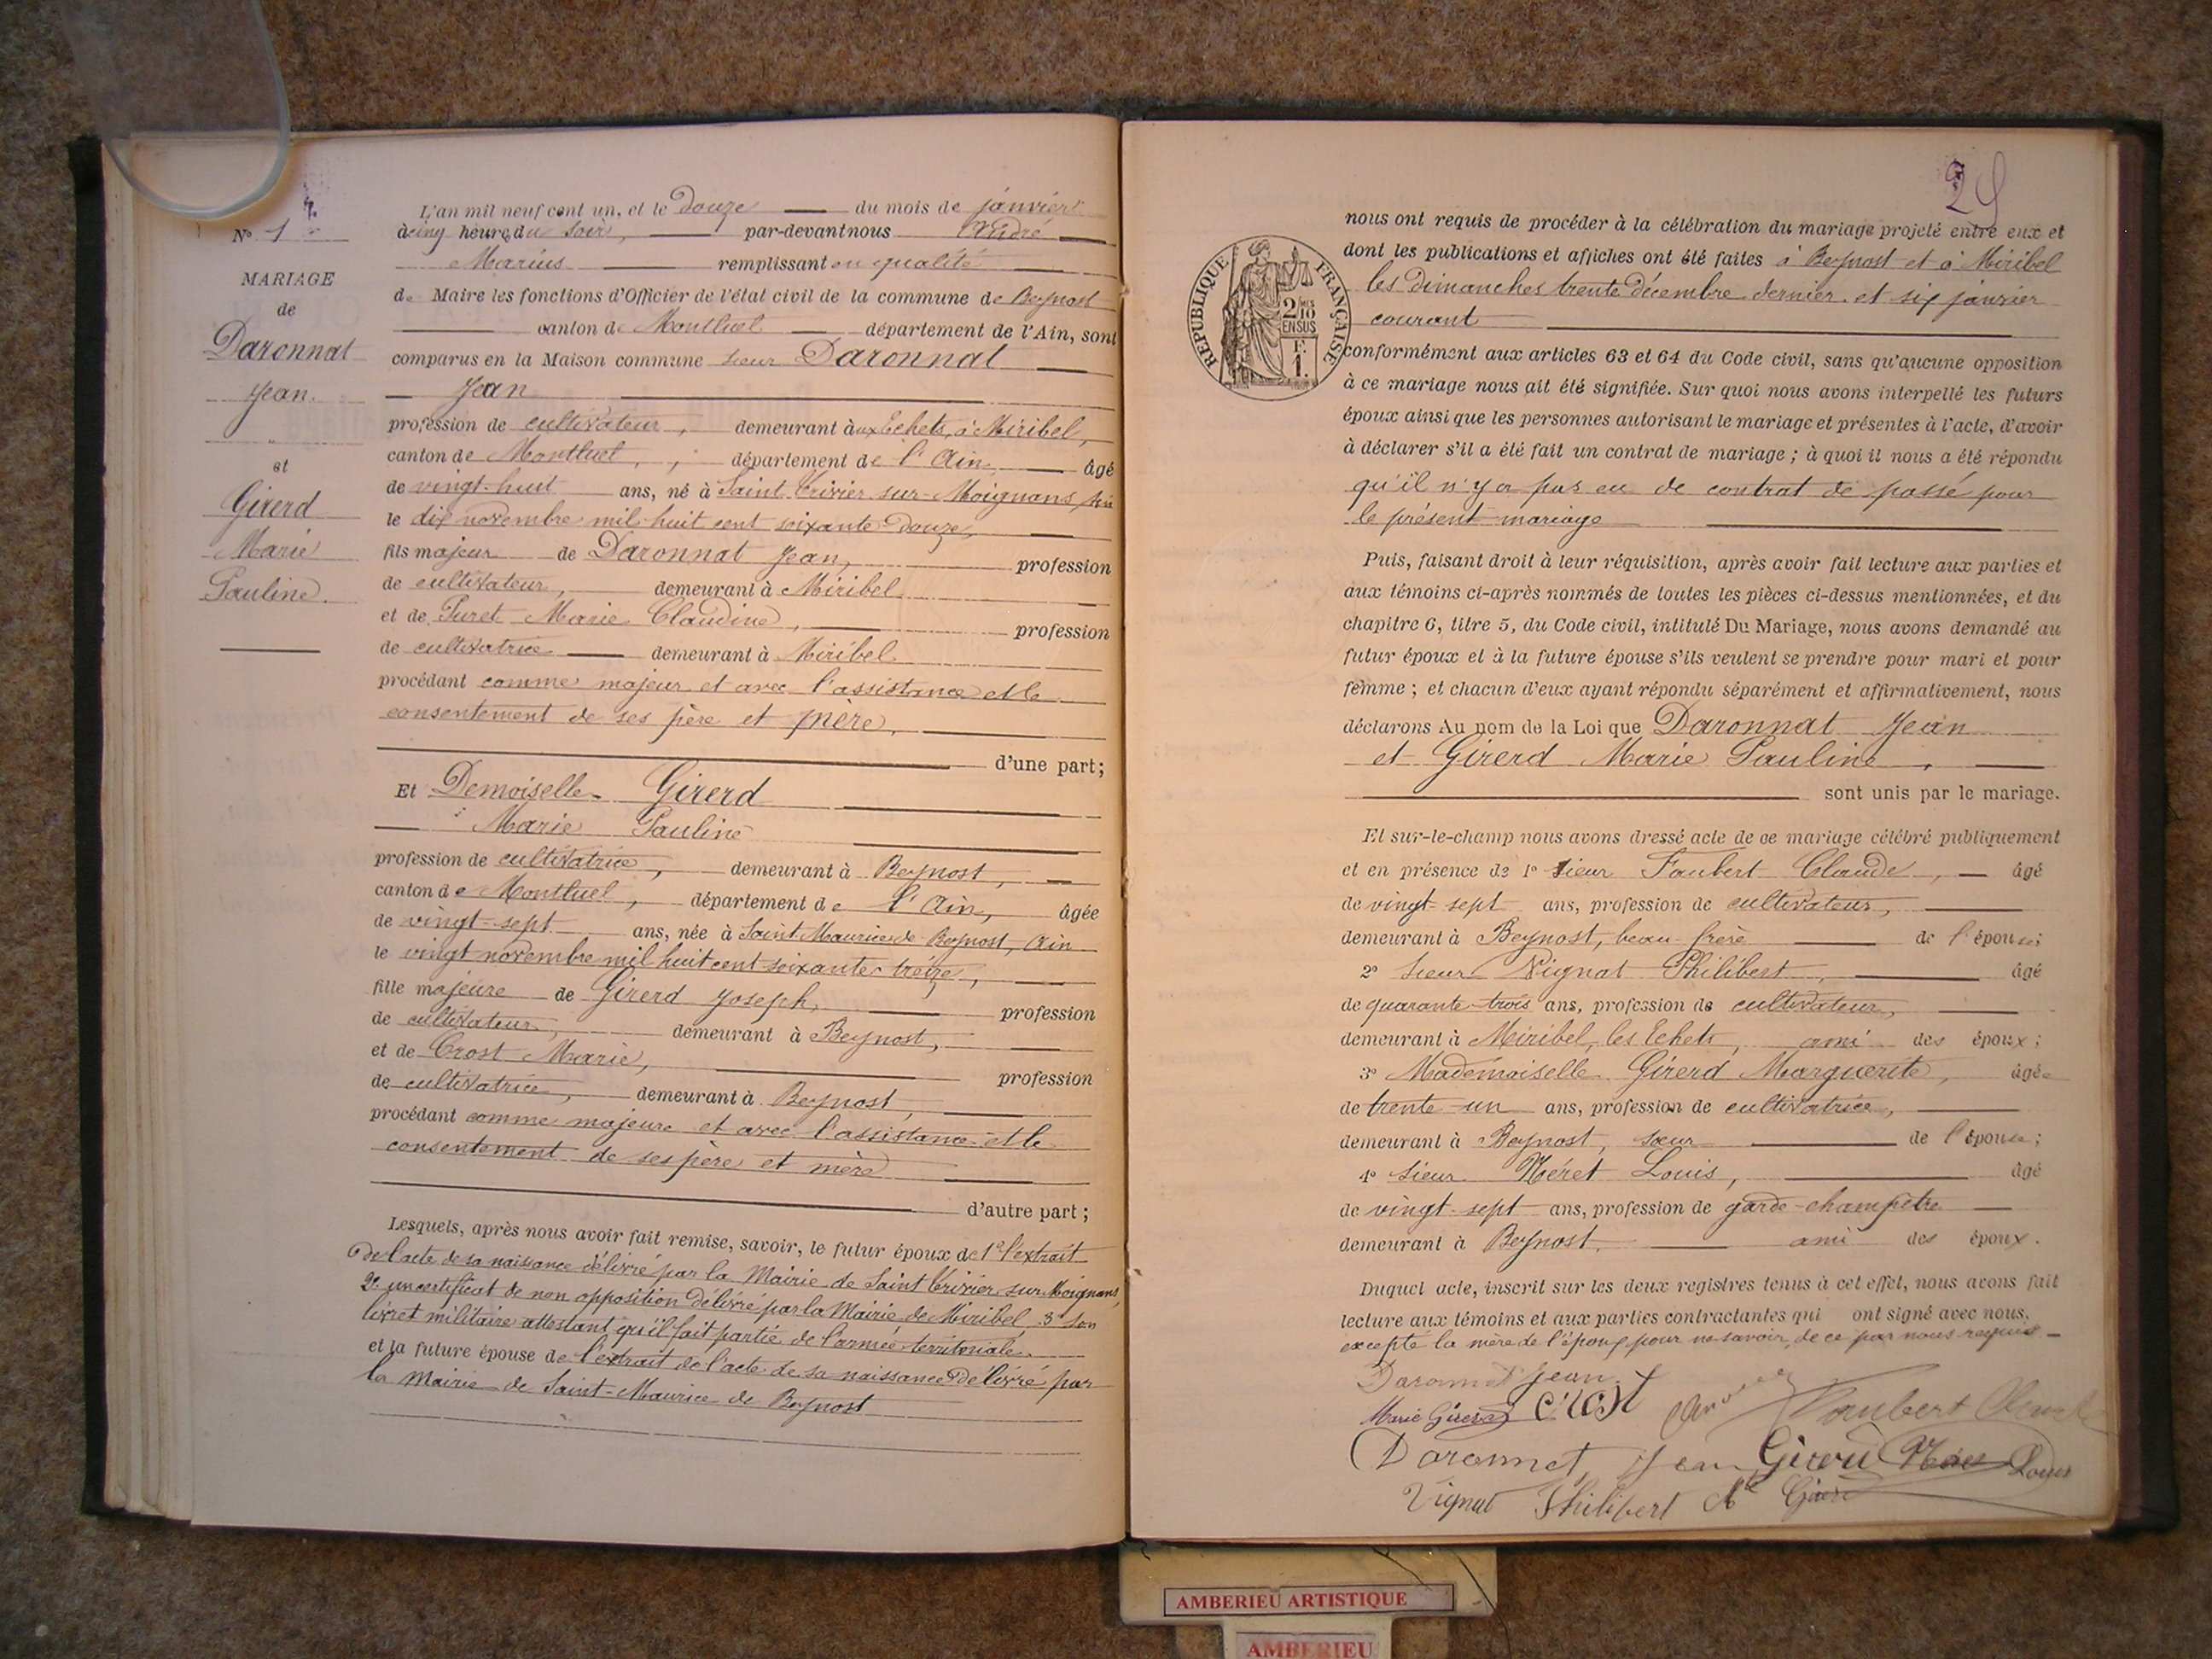 N° 1
MARIAGE
de
Daronnat
Jean.
et
Girerd
Marie
Pauline.
L'an mil neuf cent un, et le douze du mois de janvier
à cinq heures du soir, par-devant nous
Marius remplissant en qualité
de Maire les fonctions d'Officier de l'état civil de la commune de Beynost
canton de Montluel département de l'Ain, sont
comparus en la Maison commune sieur Daronnat
Jean
profession de cultivateur, demeurant aux Echets, à Miribel,
canton de Montluel, département de l'Ain, âgé
de vingt-huit ans, né à Saint Trivier sur-Moignans, Ain
le dix novembre mil huit cent soixante-douze,
fils majeur de Daronnat Jean, profession
de cultivateur, demeurant à Miribel
et de Puret Marie Claudine, profession
de cultivatrice demeurant à Miribel
procédant comme majeur et avec l'assistance et le
consentement de ses père et mère,
d'une part;
Et Demoiselle Girerd
Marie Pauline
profession de cultivatrice, demeurant à Beynost,
canton de Montluel, département de l'Ain, âgée
de vingt-sept ans, née à Saint Maurice de Beynost, Ain
le vingt novembre mil huit cent soixante-treize,
fille majeure de Girerd Joseph, profession
de cultivateur, demeurant à Beynost,
et de Crost Marie, profession
de cultivatrice, demeurant à Beynost,
procédant comme majeure et avec l'assistance et le
consentement de ses père et mère
d'autre part;
Lesquels, après nous avoir fait remise, savoir, le futur époux de 1° l'extrait
de l'acte de sa naissance délivré par la Mairie de Saint Trivier sur Moignans,
2° un certificat de non opposition délivré par la Mairie de Miribel, 3° son
livret militaire attestant qu'il fait partie de l'armée territoriale.
et la future épouse de l'extrait de l'acte de sa naissance délivré par
la Mairie de Saint-Maurice de Beynost
29
REPUBLIQUE FRANÇAISE
2/10 EN SUS
F. 1.
nous ont requis de procéder à la célébration du mariage projeté entre eux et
dont les publications et affiches ont été faites à Beynost et à Miribel
les dimanches trente décembre dernier et six janvier
courant
conformément aux articles 63 et 64 du Code civil, sans qu'aucune opposition
à ce mariage nous ait été signifiée. Sur quoi nous avons interpellé les futurs
époux ainsi que les personnes autorisant le mariage et présentes à l'acte, d'avoir
à déclarer s'il a été fait un contrat de mariage; à quoi il nous a été répondu
qu'il n'y a pas eu de contrat de passé pour
le présent mariage
Puis, faisant droit à leur réquisition, après avoir fait lecture aux parties et
aux témoins ci-après nommés de toutes les pièces ci-dessus mentionnées, et du
chapitre 6, titre 5, du Code civil, intitulé Du Mariage, nous avons demandé au
futur époux et à la future épouse s'ils veulent se prendre pour mari et pour
femme; et chacun d'eux ayant répondu séparément et affirmativement, nous
déclarons Au nom de la Loi que Daronnat Jean
et Girerd Marie Pauline,
sont unis par le mariage.
Et sur-le-champ nous avons dressé acte de ce mariage célébré publiquement
et en présence de 1° sieur Faubert Claude, âgé
de vingt-sept ans, profession de cultivateur,
demeurant à Beynost, beau-frère de l'épouse;
2° sieur Vignat Philibert, âgé
de quarante-trois ans, profession de cultivateur,
demeurant à Miribel, les Echets, ami des époux;
3° Mademoiselle Girerd Marguerite, âgée
de trente-un ans, profession de cultivatrice,
demeurant à Beynost, sœur de l'épouse;
4° sieur Méret Louis, âgé
de vingt-sept ans, profession de garde-champêtre
demeurant à Beynost, ami des époux.
Duquel acte, inscrit sur les deux registres tenus à cet effet, nous avons fait
lecture aux témoins et aux parties contractantes qui ont signé avec nous.
excepté la mère de l'époux pour ne savoir, de ce par nous requis
Daronnat Jean
Marie Girerd Crost Faubert Claude
Daronnat Jean Louis
Vignat Philibert
AMBERIEU ARTISTIQUE
AMBERIEU